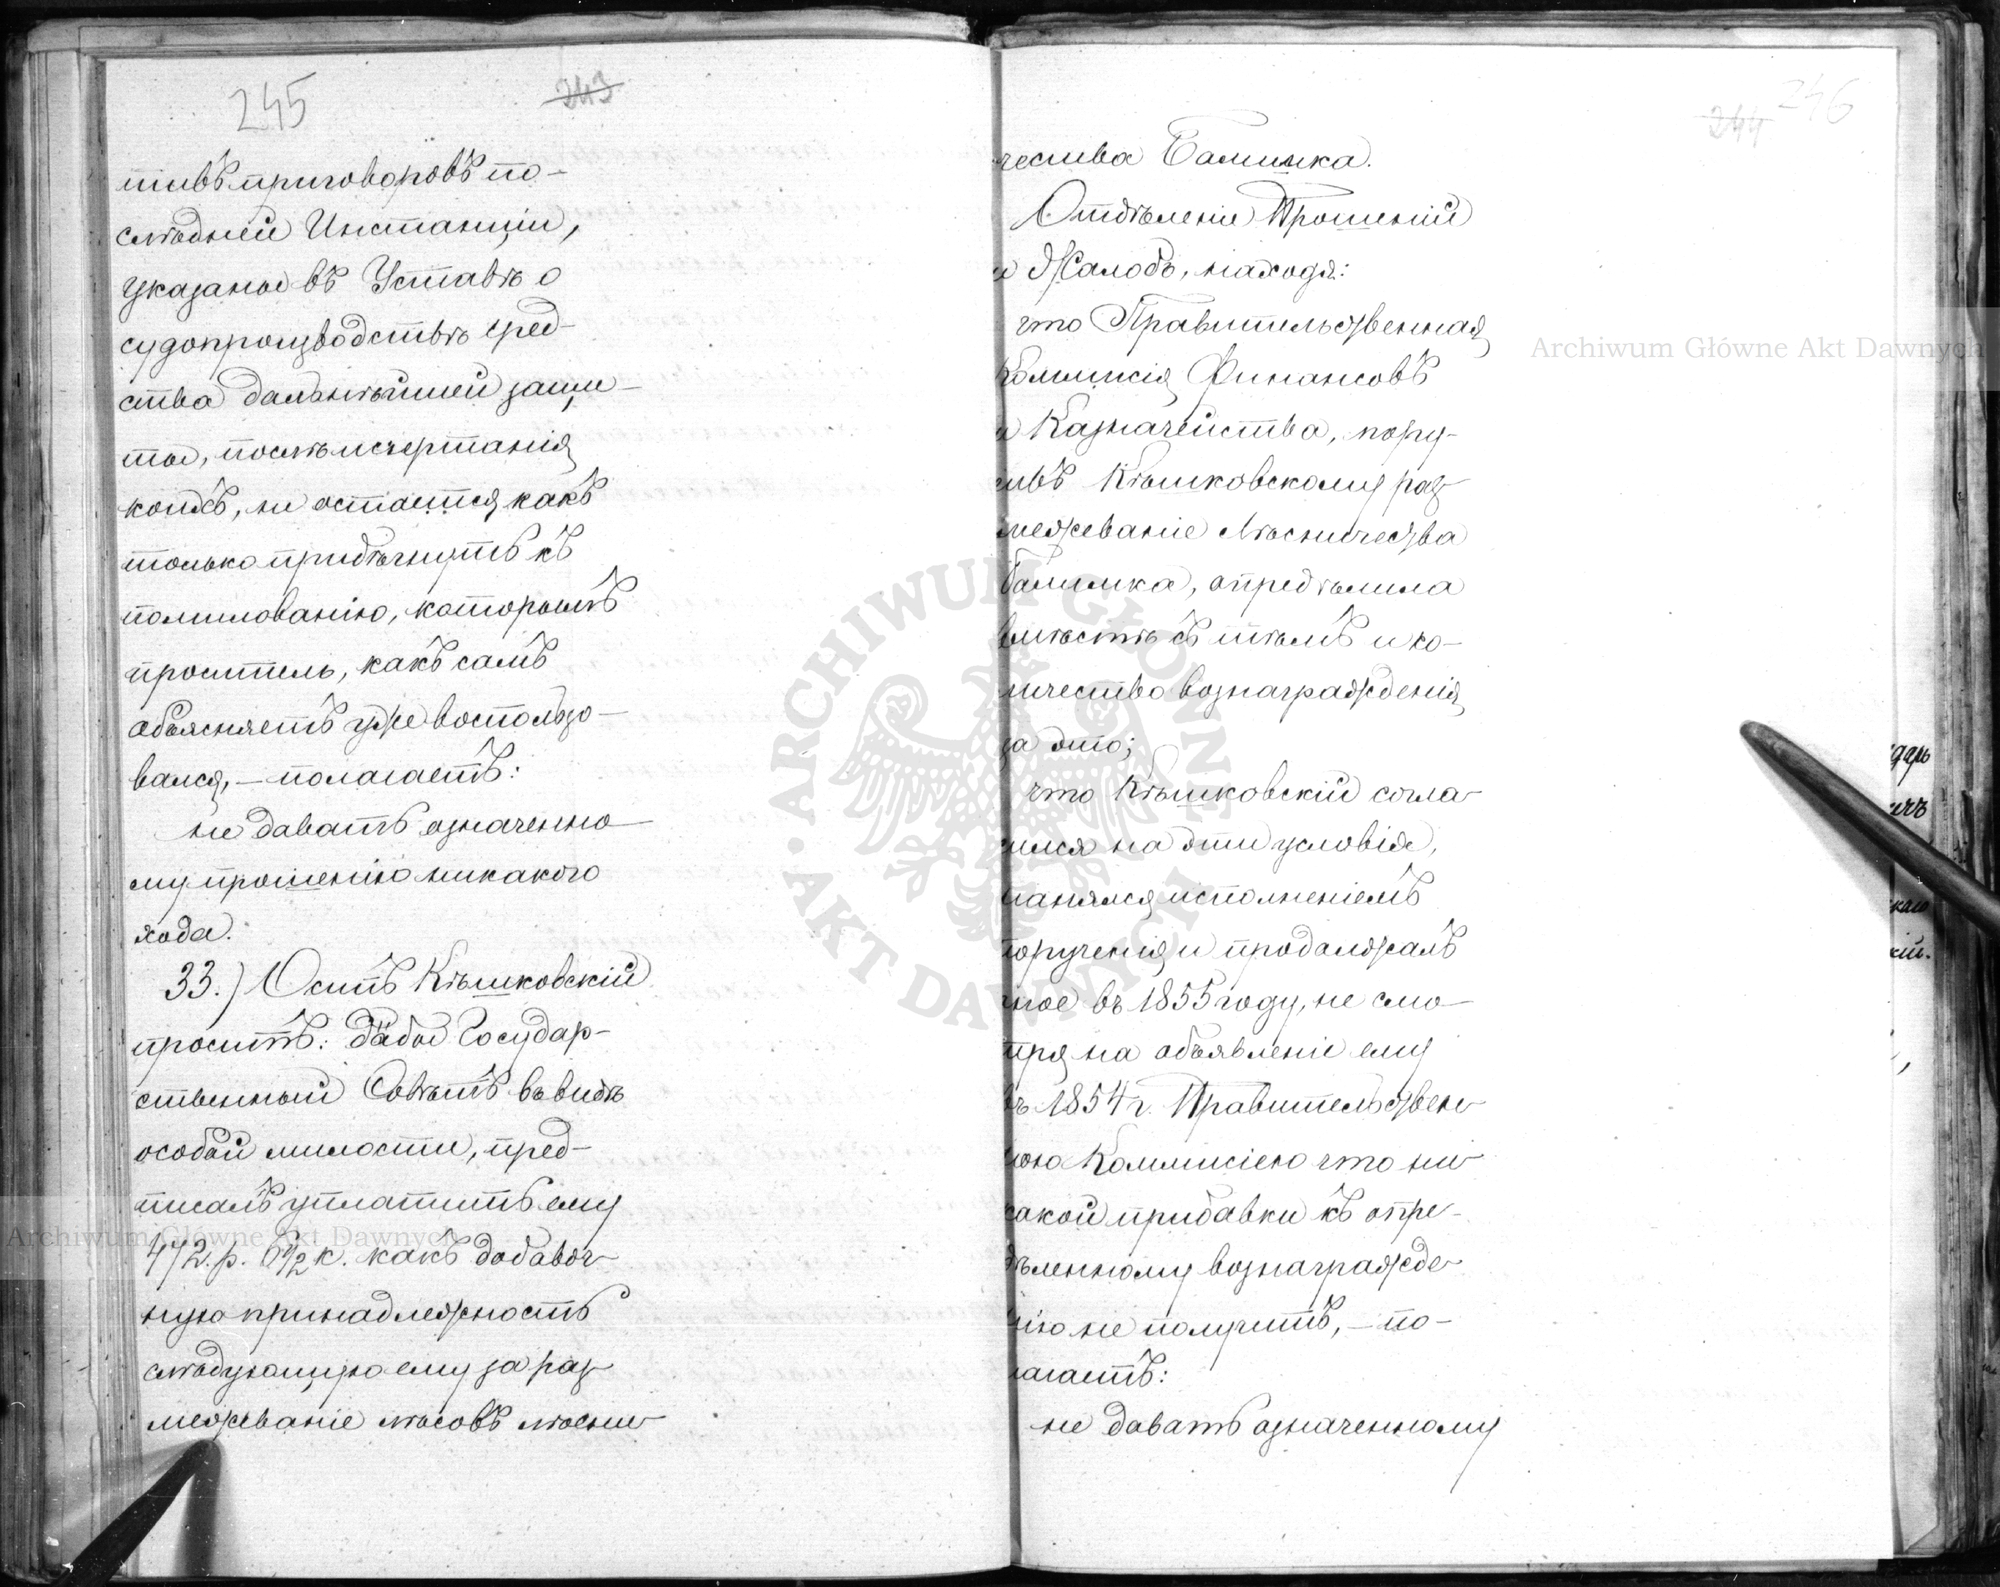 245
243
тивъ приговоровъ по-
слѣдней Инстанціи,
указаные въ Уставѣ о
судопроизводствѣ сред-
ства дальнѣйшей защи-
ты, послѣ исчерпанія
коихъ, не остается какъ
только прибѣгнуть къ
помилованію, которымъ
проситель, какъ самъ
объясняетъ уже воспользо-
вался, — полагаетъ:
не давать означенно-
му прошенію никакого
хода.
33.) Осипъ Кѣшковскій
проситъ: дабы Государ-
ственный Совѣтъ въ видѣ
особой милости, пред-
писалъ уплатить ему
472 р. 6½ к. какъ добавоч-
ную принадлежность
слѣдующую ему за раз-
межеваніе лѣсовъ лѣсни-
244 246
чества Балинка.
Отдѣленіе Прошеній
и Жалобъ, находя:
что Правительственная
Коммисія Финансовъ
и Казначейства, пору-
чивъ Кѣшковскому раз-
межеваніе Лѣсничества
Балинка, опредѣлила
вмѣстѣ съ тѣмъ и ко-
личество вознагражденія
за это;
что Кѣшковскій согла-
сился на эти условія,
занялся исполненіемъ
порученія и продолжалъ
оное въ 1855 году, не смо-
тря на объявленіе ему
въ 1854 г. Правительствен-
ною Коммисіею что ни-
какой прибавки къ опре-
дѣленному вознагражде-
нію не получитъ, — по-
лагаетъ:
не давать означенному
Archiwum Główne Akt Dawnych
Archiwum Główne Akt Dawnych
ARCHIWUM GŁÓWNE
AKT DAWNYCH